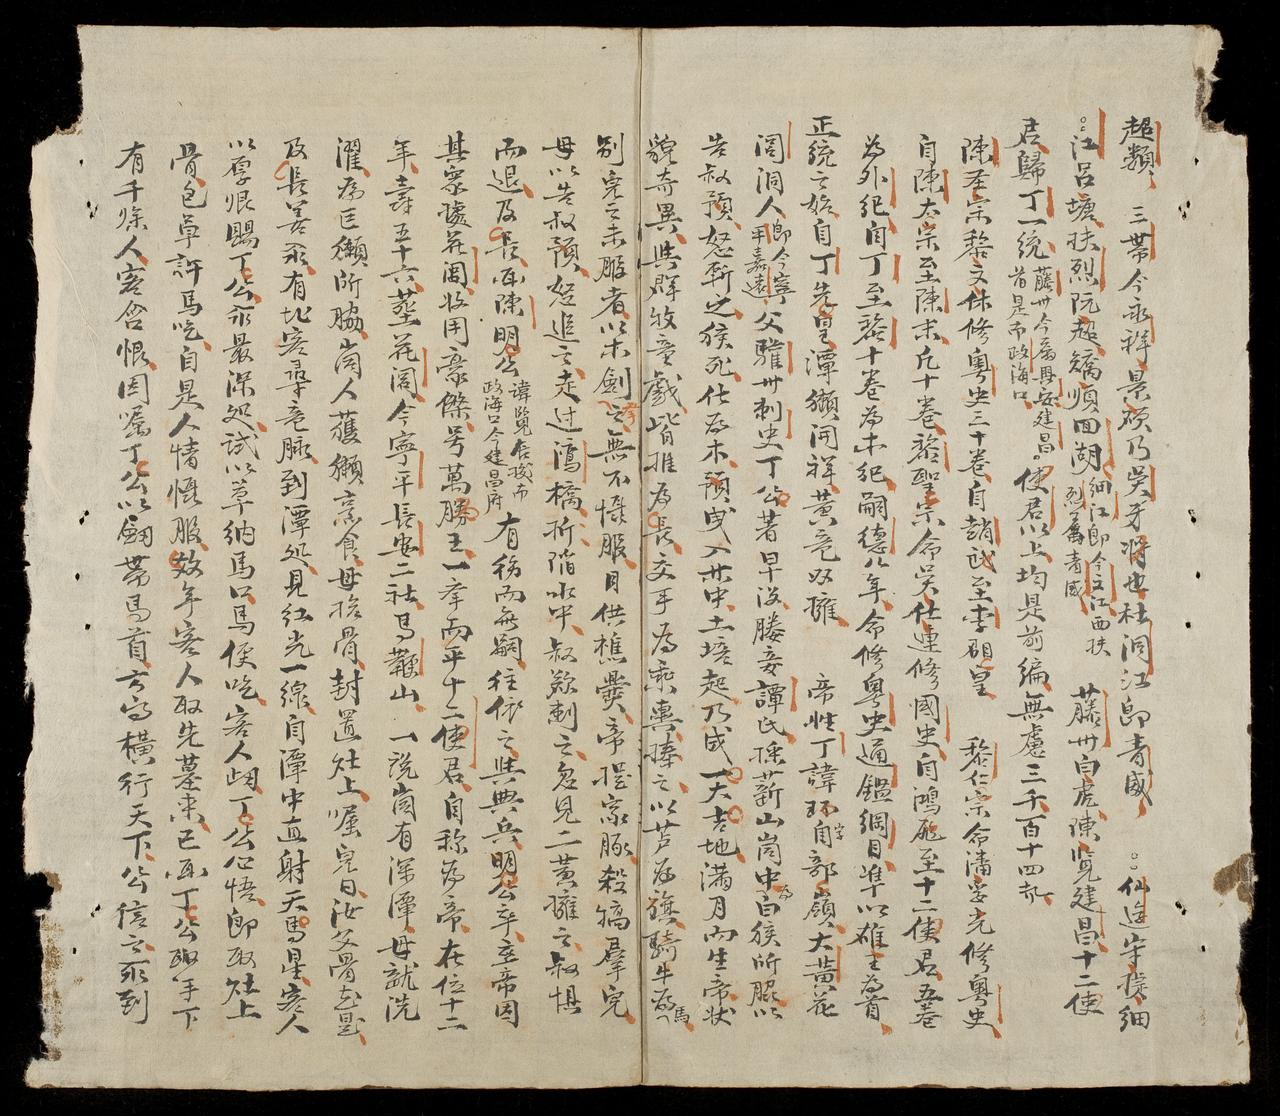 超類 三帶今永祥景碩乃吳牙將也杜洞江即青威 仙遊宇撲細
江呂塘扶烈阮超矯順回湖細江即今文江西扶烈屬青威 藤州白虎陳覽建昌十二使
君歸丁一統藤州今屬興安建昌首是布政海口使君以上均是前編無慮三千百十四
陳圣宗黎文休修粤史三十卷自趙武至李昭皇 黎仁宗命潘孚先修粤史
自陳太宗至陳末凡十卷黎聖宗命吳仕連修國史自鴻厖至十二使君五卷
為外紀自丁至黎十卷為本紀嗣德八年命修粤史通鑑綱目準以雄王為首
正統之始自丁先皇潭獺開祥黃竜双擁 帝性丁諱环自部嶺大黃花
閭洞人即今寧平嘉遠父驩州刺史丁公著早没媵妾譚氏採薪山崗中白猴所脇以
告叔預怒斬之猴死仕為木預曳入其中土培起乃成一大吉地滿月而生帝狀
貌奇異與群牧童戲皆推為長交手為乘輿捧之以芦為旗騎牛為馬
別宅之未服者以木劍之無不慨服日供樵爨帝提家豚殺犒群兒
母以告叔預怒追之走过瀉橋折陷水中叔欲刺之忽見二黄擁之叔惧
而退及長而陳明公諱覽占据布政海口今建昌府有移而無嗣往依之與典兵明公卒立帝因
其衆據花閭收用豪傑号萬勝王一李而平十二使君自称為帝在位十二
年壽五十六葬花閭今寧平長安二社馬鞍山 一說崗有深潭母就洗
濯為巨獺所脇崗人獲獺烹食母拾骨封置灶上囑兒曰汝父骨
及長善泅有北客尋竜脉到潭処見红光一線自潭中直射天馬星客人
以厚恨賜丁公泅最深処試以草納馬口馬便吃客人明丁公心悟即取灶上
骨包草許馬吃自是人情慨服效年客人取先墓来已而丁公取年下
有千餘人客含恨因囑丁公以劍帶馬首方可橫行天下公信之泅到